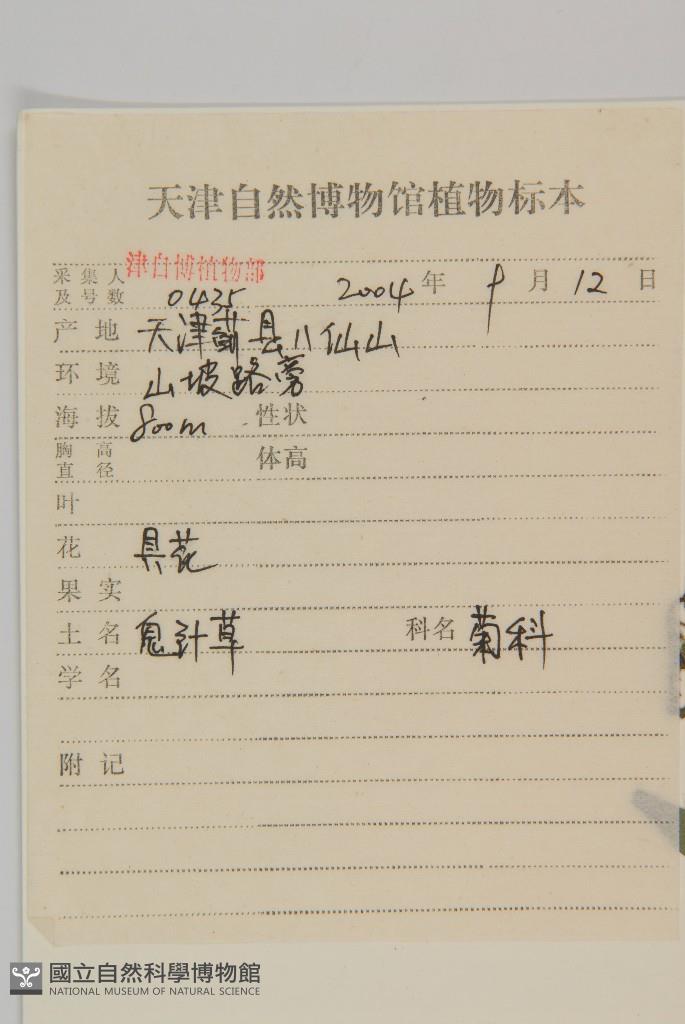 天津自然博物馆植物标本
采集人及号数 津自博植物部 0435 2004年 9月12日
产地 天津蓟县八仙山
环境 山坡路旁
海拔 800m 性状
胸高直径 体高
叶
花 具花
果实
土名 鬼针草 科名 菊科
学名
附记
國立自然科學博物館
NATIONAL MUSEUM OF NATURAL SCIENCE